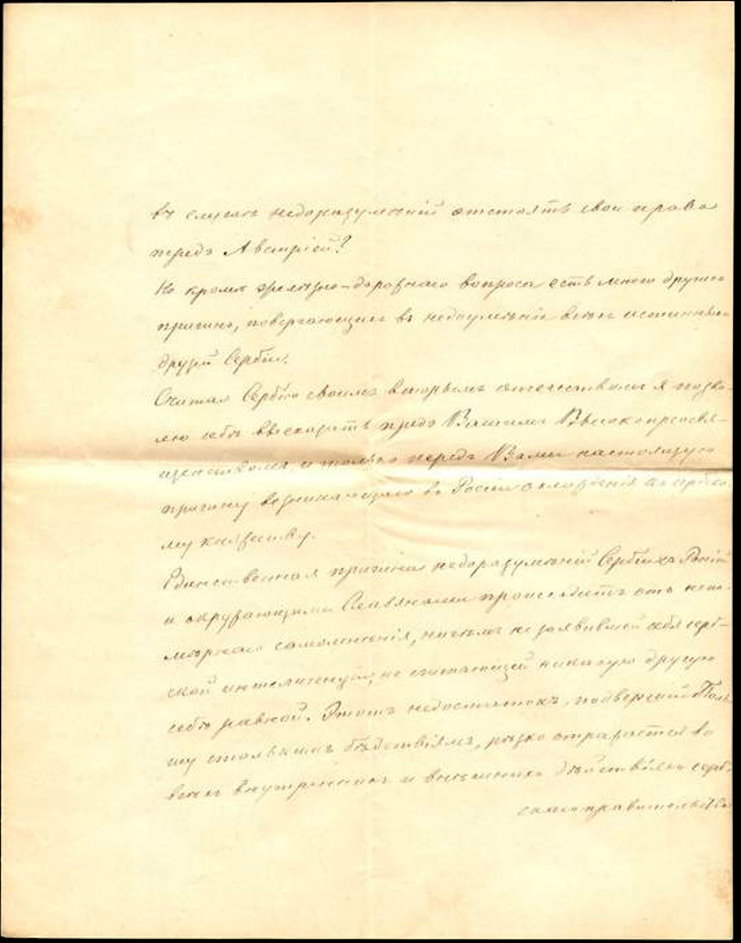 въ случаѣ недоразумѣній отстоять свои права
передъ Австріей?
Но кромѣ желѣзно-дорожнаго вопроса есть много другихъ
причинъ, повергающихъ въ недоумѣніе всѣхъ истинныхъ
друзей Сербіи.
Считая Сербію своимъ вторымъ отечествомъ я позво-
лю себѣ высказать предъ Вашимъ Высокопреосвя-
щенствомъ и только передъ Вами настоящую
причину возникающаго въ Россіи охлажденія къ сербско-
му
Единственная причина недоразумѣній Сербіи съ Россіей
и окружающими Славянами происходитъ отъ непо-
мѣрнаго самомнѣнія, ничѣмъ не заявившей себя серб-
ской интеллигенціи, не считающей никакую другую
себѣ равной. Этотъ недостатокъ, подвергшій Поль-
шу столькимъ бѣдствіямъ, рѣзко отразится во
всѣхъ внутреннихъ и внѣшнихъ дѣйствіяхъ серб-
скаго правительства